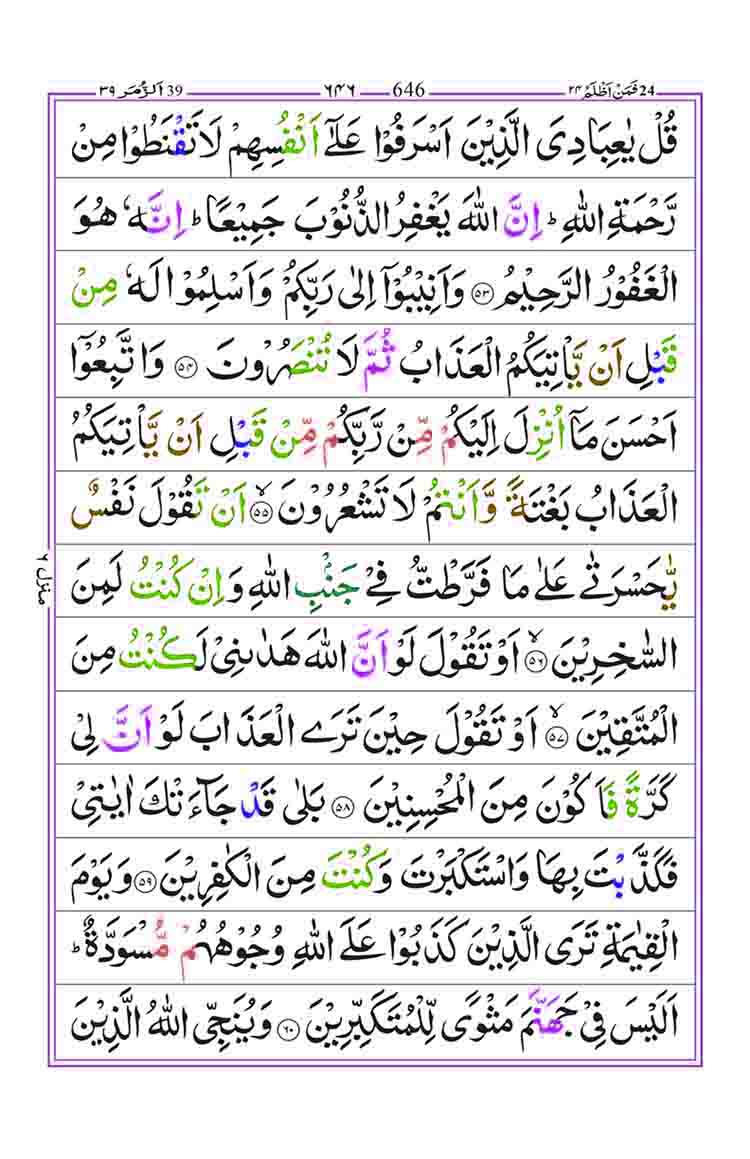 39 اَلزُّمَر ٣٩ ٦٤٦ 646 فَمَنْ اَظْلَمُ ٢٤ 24
قُلْ يٰعِبَادِىَ الَّذِيْنَ اَسْرَفُوْا عَلٰٓى اَنْفُسِهِمْ لَا تَقْنَطُوْا مِنْ
رَّحْمَةِ اللّٰهِ ؕ اِنَّ اللّٰهَ يَغْفِرُ الذُّنُوْبَ جَمِيْعًا ؕ اِنَّهٗ هُوَ
الْغَفُوْرُ الرَّحِيْمُ ۝٥٣ وَاَنِيْبُوْۤا اِلٰى رَبِّكُمْ وَاَسْلِمُوْا لَهٗ مِنْ
قَبْلِ اَنْ يَّاْتِيَكُمُ الْعَذَابُ ثُمَّ لَا تُنْصَرُوْنَ ۝٥٤ وَاتَّبِعُوْۤا
اَحْسَنَ مَاۤ اُنْزِلَ اِلَيْكُمْ مِّنْ رَّبِّكُمْ مِّنْ قَبْلِ اَنْ يَّاْتِيَكُمُ
الْعَذَابُ بَغْتَةً وَّاَنْتُمْ لَا تَشْعُرُوْنَ ۙ۝٥٥ اَنْ تَقُوْلَ نَفْسٌ
يّٰحَسْرَتٰى عَلٰى مَا فَرَّطْتُّ فِىْ جَنْۢبِ اللّٰهِ وَاِنْ كُنْتُ لَمِنَ
السّٰخِرِيْنَ ۙ۝٥٦ اَوْ تَقُوْلَ لَوْ اَنَّ اللّٰهَ هَدٰىنِىْ لَكُنْتُ مِنَ
الْمُتَّقِيْنَ ۙ۝٥٧ اَوْ تَقُوْلَ حِيْنَ تَرَى الْعَذَابَ لَوْ اَنَّ لِىْ
كَرَّةً فَاَكُوْنَ مِنَ الْمُحْسِنِيْنَ ۝٥٨ بَلٰى قَدْ جَآءَتْكَ اٰيٰتِىْ
فَكَذَّبْتَ بِهَا وَاسْتَكْبَرْتَ وَكُنْتَ مِنَ الْكٰفِرِيْنَ ۝٥٩ وَيَوْمَ
الْقِيٰمَةِ تَرَى الَّذِيْنَ كَذَبُوْا عَلَى اللّٰهِ وُجُوْهُهُمْ مُّسْوَدَّةٌ ؕ
اَلَيْسَ فِىْ جَهَنَّمَ مَثْوًى لِّلْمُتَكَبِّرِيْنَ ۝٦٠ وَيُنَجِّى اللّٰهُ الَّذِيْنَ
منزل ٦